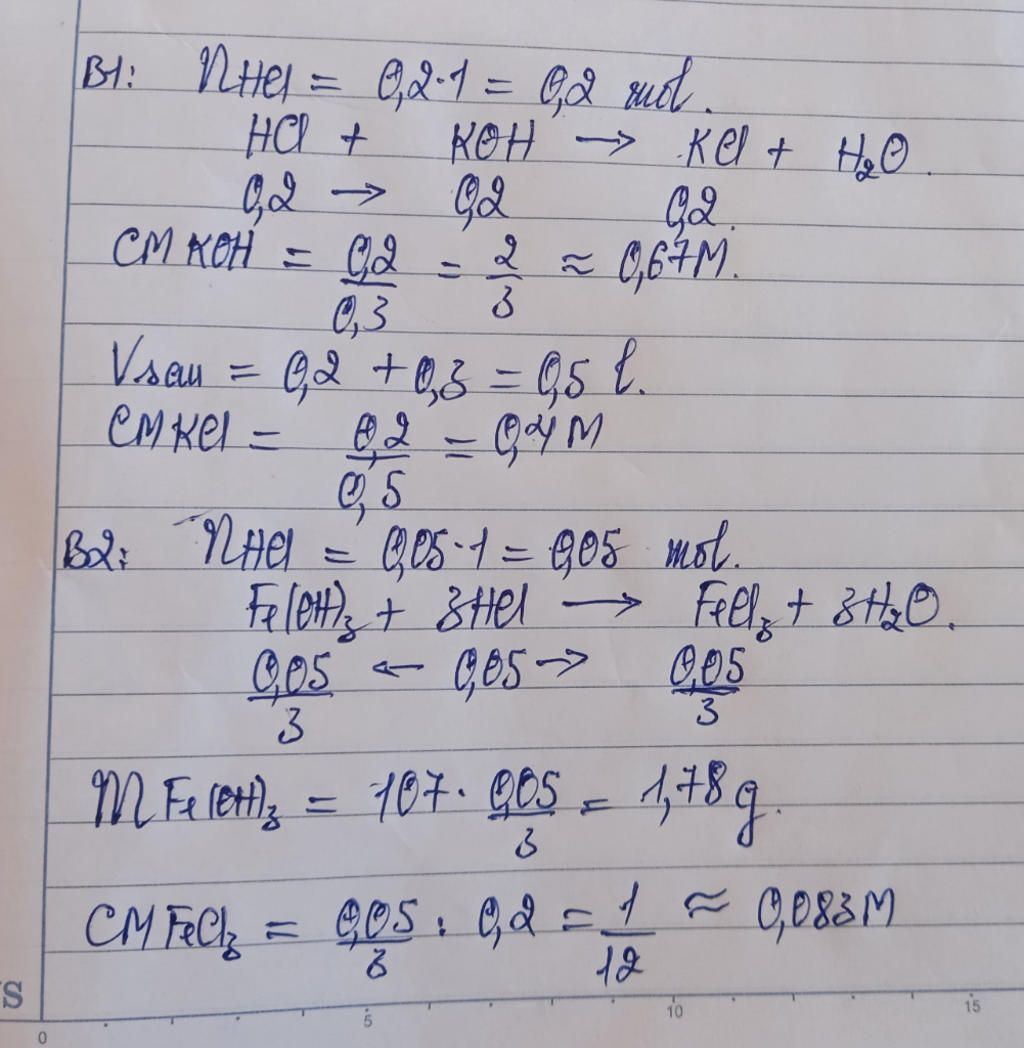 B1: nHCl = 0,2.1 = 0,2 mol.
HCl + KOH → KCl + H₂O.
0,2 → 0,2 0,2.
CM KOH = 0,2/0,3 = 2/3 ≈ 0,67M.
Vsau = 0,2 + 0,3 = 0,5 l.
CM KCl = 0,2/0,5 = 0,4M
B2: nHCl = 0,05.1 = 0,05 mol.
Fe(OH)₃ + 3HCl → FeCl₃ + 3H₂O.
0,05/3 ← 0,05 → 0,05/3
mFe(OH)₃ = 107. 0,05/3 = 1,78 g.
CM FeCl₃ = 0,05/3 : 0,2 = 1/12 ≈ 0,083M
S
0 5 10 15